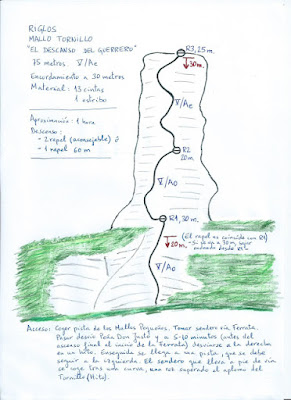 RIGLOS
MALLO TORNILLO
"EL DESCANSO DEL GUERRERO"
75 metros. V/Ae
Encordamiento a 30 metros
Material: 13 cintas
1 estribo
Aproximación: 1 hora
Descenso:
- 2 rapel (aconsejable) ó
- 1 rapel 60 m
R3, 25 m.
30 m.
V/Ae
R2
20 m
V/Ao
R1, 30 m.
(El rapel no coincide con R1)
20 m.
V/Ao
Acceso: Coger pista de los Mallos Pequeños. Tomar sendero vía Ferrata.
Pasar desvío Peña Don Justo y a 5-10 minutos (antes del
ascenso final al inicio de la Ferrata) desviarse a la derecha
en un hito. Enseguida se llega a una pista, que se debe
seguir a la izquierda. El sendero que lleva a pie de vía
se coge tras una curva, una vez superado el aplomo del
Tornillo (Hito).